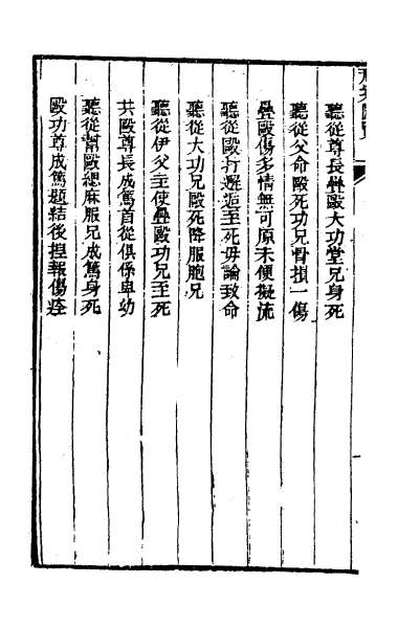 聽從尊長疊毆大功堂兄身死
聽從父命毆死功兄骨損一傷
疊毆傷多情無可原未便擬流
聽從毆打邂逅至死毋論致命
聽從大功兄毆死降服胞兄
聽從伊父主使疊毆功兄至死
共毆尊長成篤首從俱係卑幼
聽從幫毆緦麻服兄成篤身死
毆功尊成篤題結後捏報傷痊